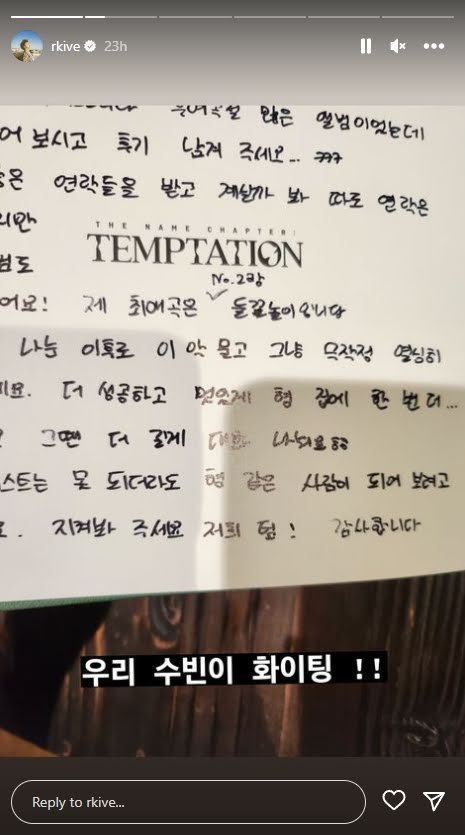 rkive 23h
많은 앨범이었는데
어 보시고 후기 남겨 주세요... ㅋㅋㅋ
은 연락들을 받고 계실까 봐 따로 연락은
지만
THE NAME CHAPTER:
TEMPTATION
범도
No.2랑
어요! 제 최애곡은 ✓ 들끝놀이입니다
나눈 이후로 이 악 물고 그냥 무작정 열심히
요. 더 성공하고 멋있게 형 집에 한 번 더...
그땐 더 길게 대화 나눠요
스트는 못 되더라도 형 같은 사람이 되어 보려고
요. 지켜봐 주세요 저희 팀! 감사합니다
우리 수빈이 화이팅 !!
Reply to rkive...